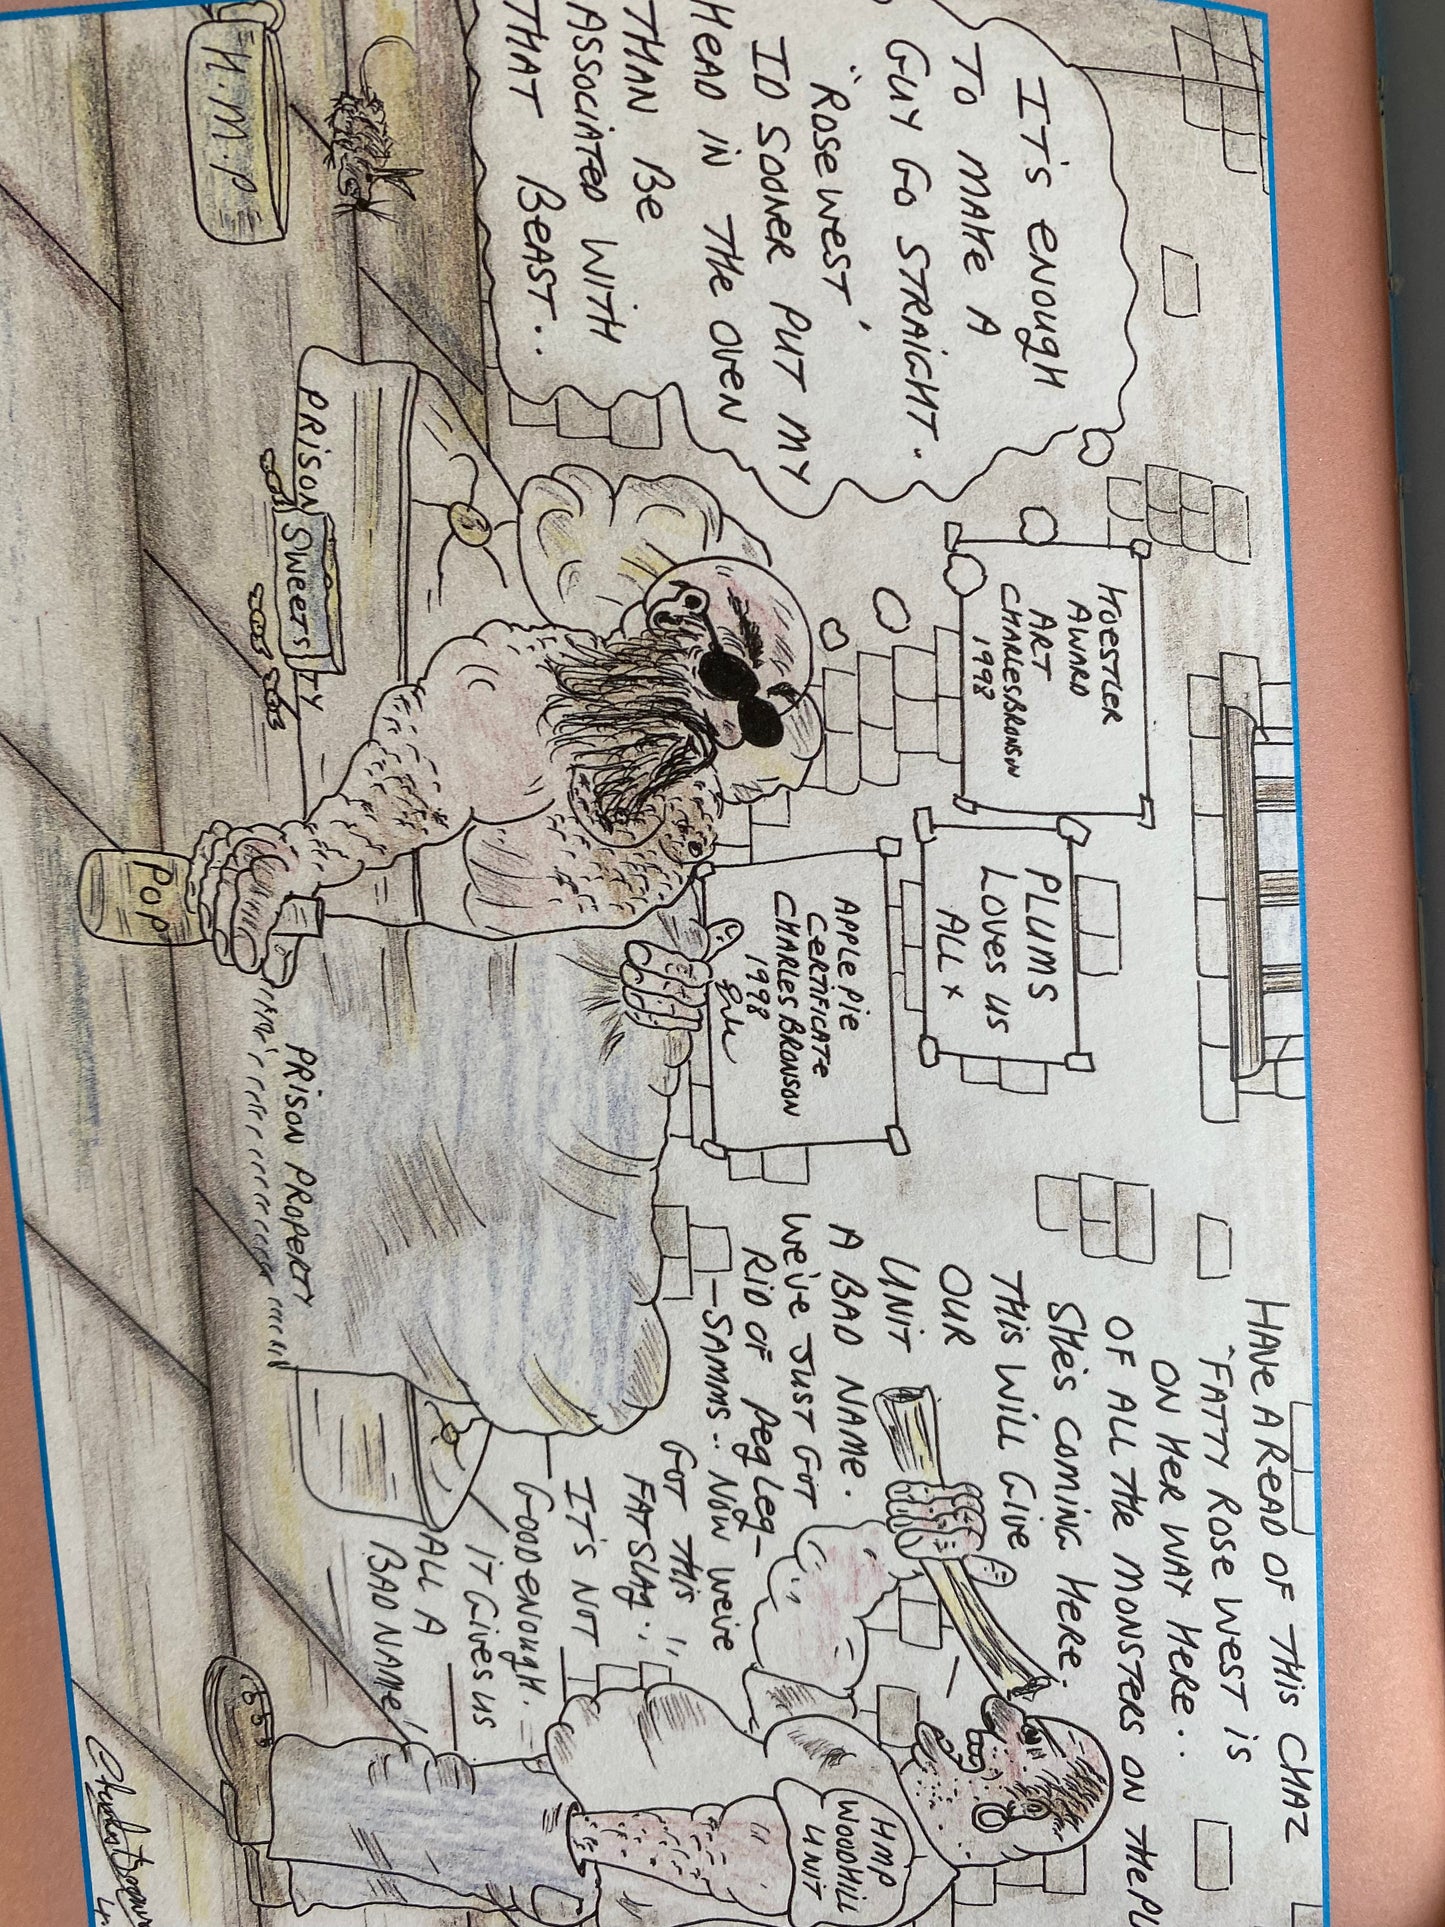 IT'S ENOUGH
TO MAKE A
GUY GO STRAIGHT.
"ROSE WEST'
ID SOONER PUT MY
HEAD IN THE OVEN
THAN BE
ASSOCIATED WITH
THAT BEAST..
H.M.P
KOESTLER
AWARD
ART
CHARLES BRONSON
1998
PLUMS
LOVES US
ALL X
APPLE PIE
CERTIFICATE
CHARLES BRONSON
1998
HAVE A READ OF THIS CHAZ
"FATTY ROSE WEST IS
ON HER WAY HERE..
OF ALL THE MONSTERS ON THE PL
SHE'S COMING HERE.
THIS WILL GIVE
OUR
UNIT
A BAD NAME.
WE'VE JUST GOT
RID OF PEG LEG-
-SAMMS.. NOW WE'VE
GOT THIS
FAT SLAG..
IT'S NOT
GOOD ENOUGH.
IT GIVES US
ALL A
BAD NAME!
HMP
WOODHILL
UNIT
PRISON
SWEETS
TY
POP
PRISON PROPERTY